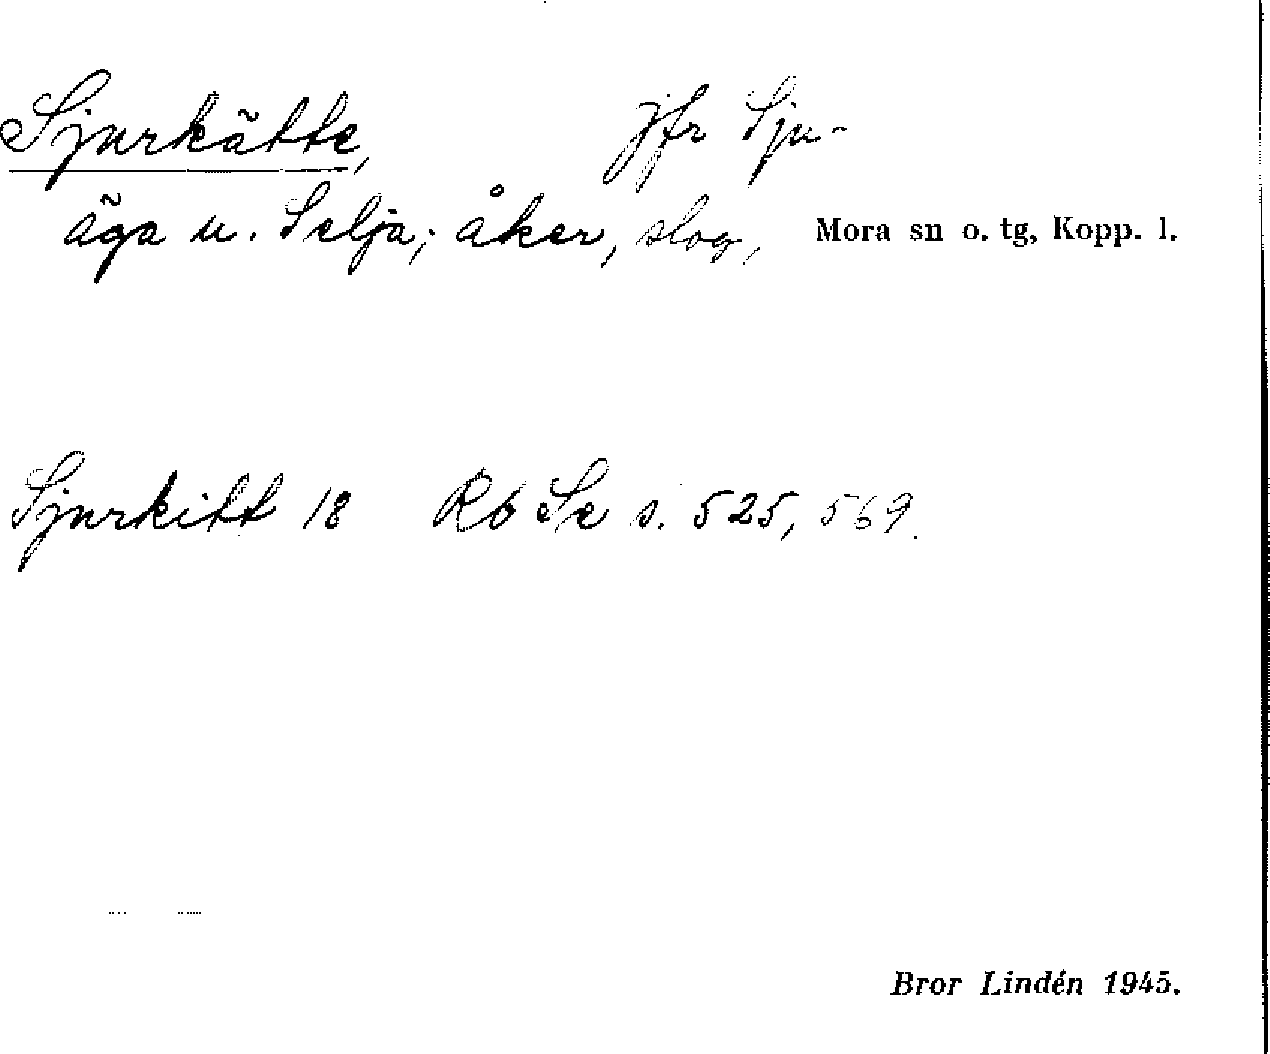 Sjurkätte, Jfr Sju-
äga u. Selja; åker, slog, Mora sn o. tg, Kopp. l.
Sjurkitt 18 Rb Se s. 525, 569.
Bror Lindén 1945.